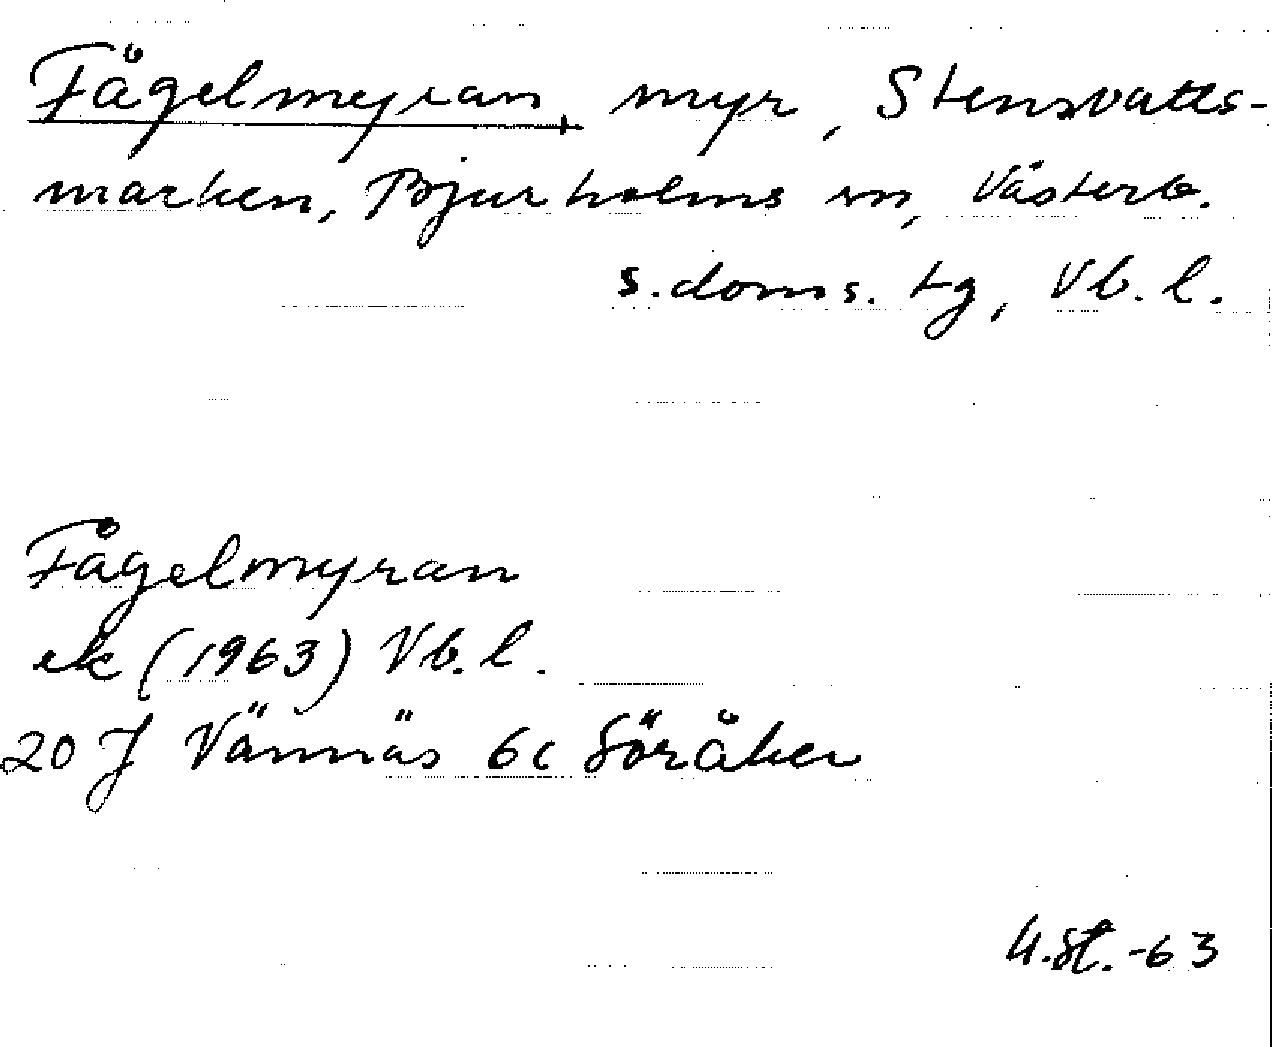 Fågelmyran, myr, Stensvatts-
marken, Bjurholms sn, Västerb.
s. doms. tg, Vb. l.
Fågelmyran
ek (1963) Vb. l.
20 J Vännäs 6c Söråker
-63